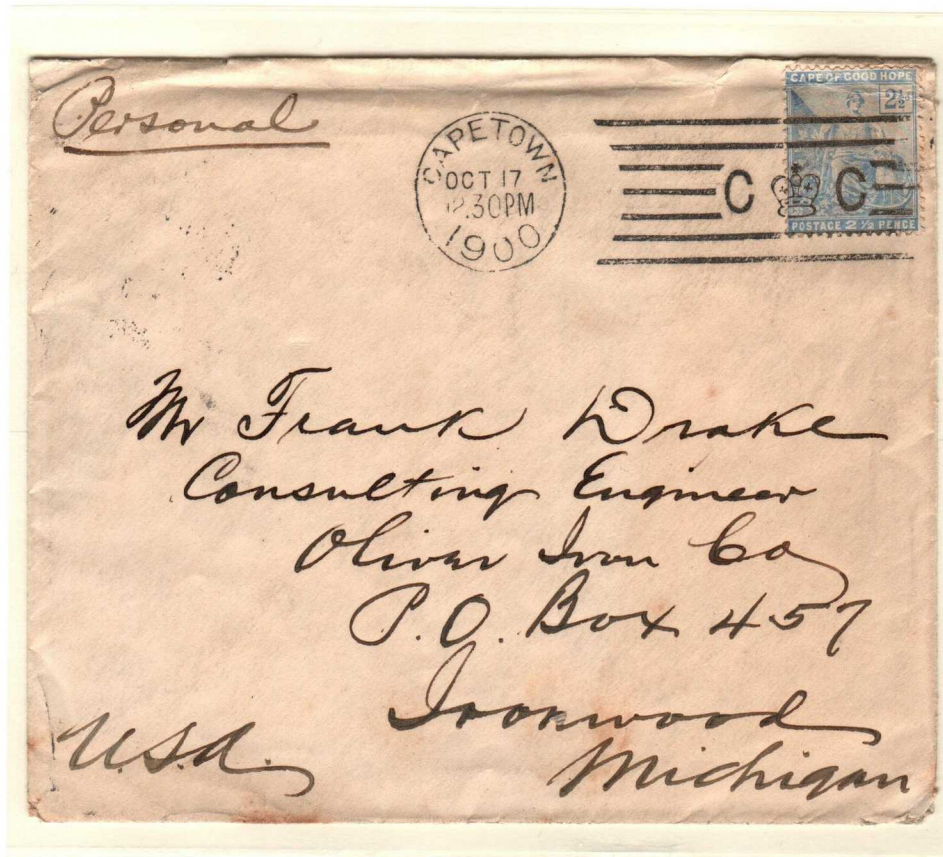 Personal
CAPETOWN
OCT 17
12.30PM
1900
C C
CAPE OF GOOD HOPE
2½
POSTAGE 2½ PENCE
Mr Frank Drake
Consulting Engineer
Oliver Iron Co
P.O. Box 457
Ironwood
Michigan
U.S.A.